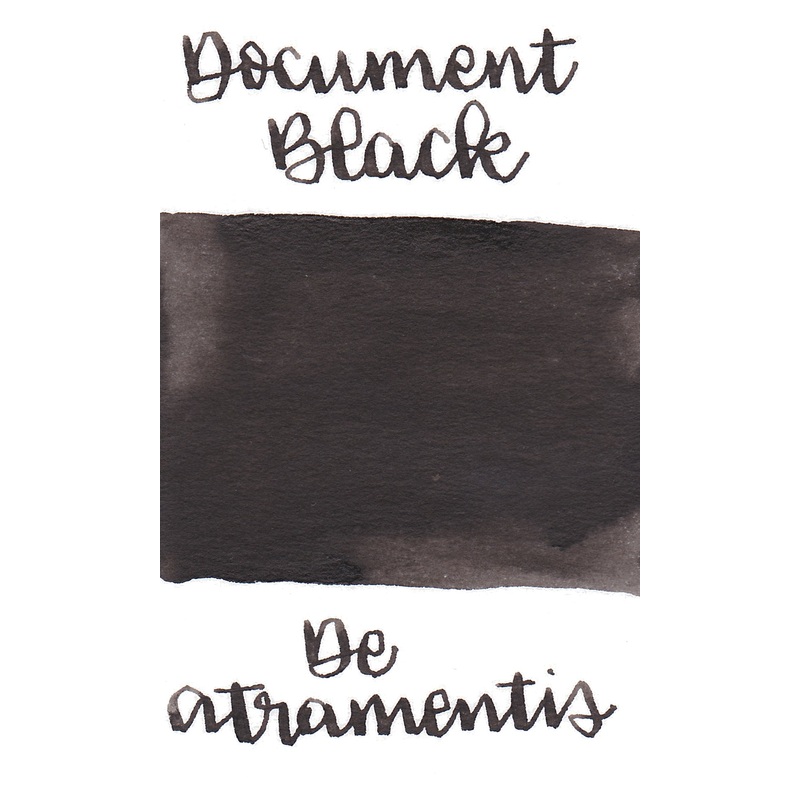 Document
Black
De
atramentis